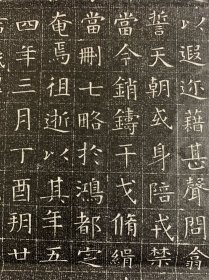 以遐迩藉甚聲問翕
誓天朝或身陪戎禁
當今銷鑄干戈脩緝
當刪七略於鴻都定
奄焉祖逝以其年五
四年三月丁酉朔廿